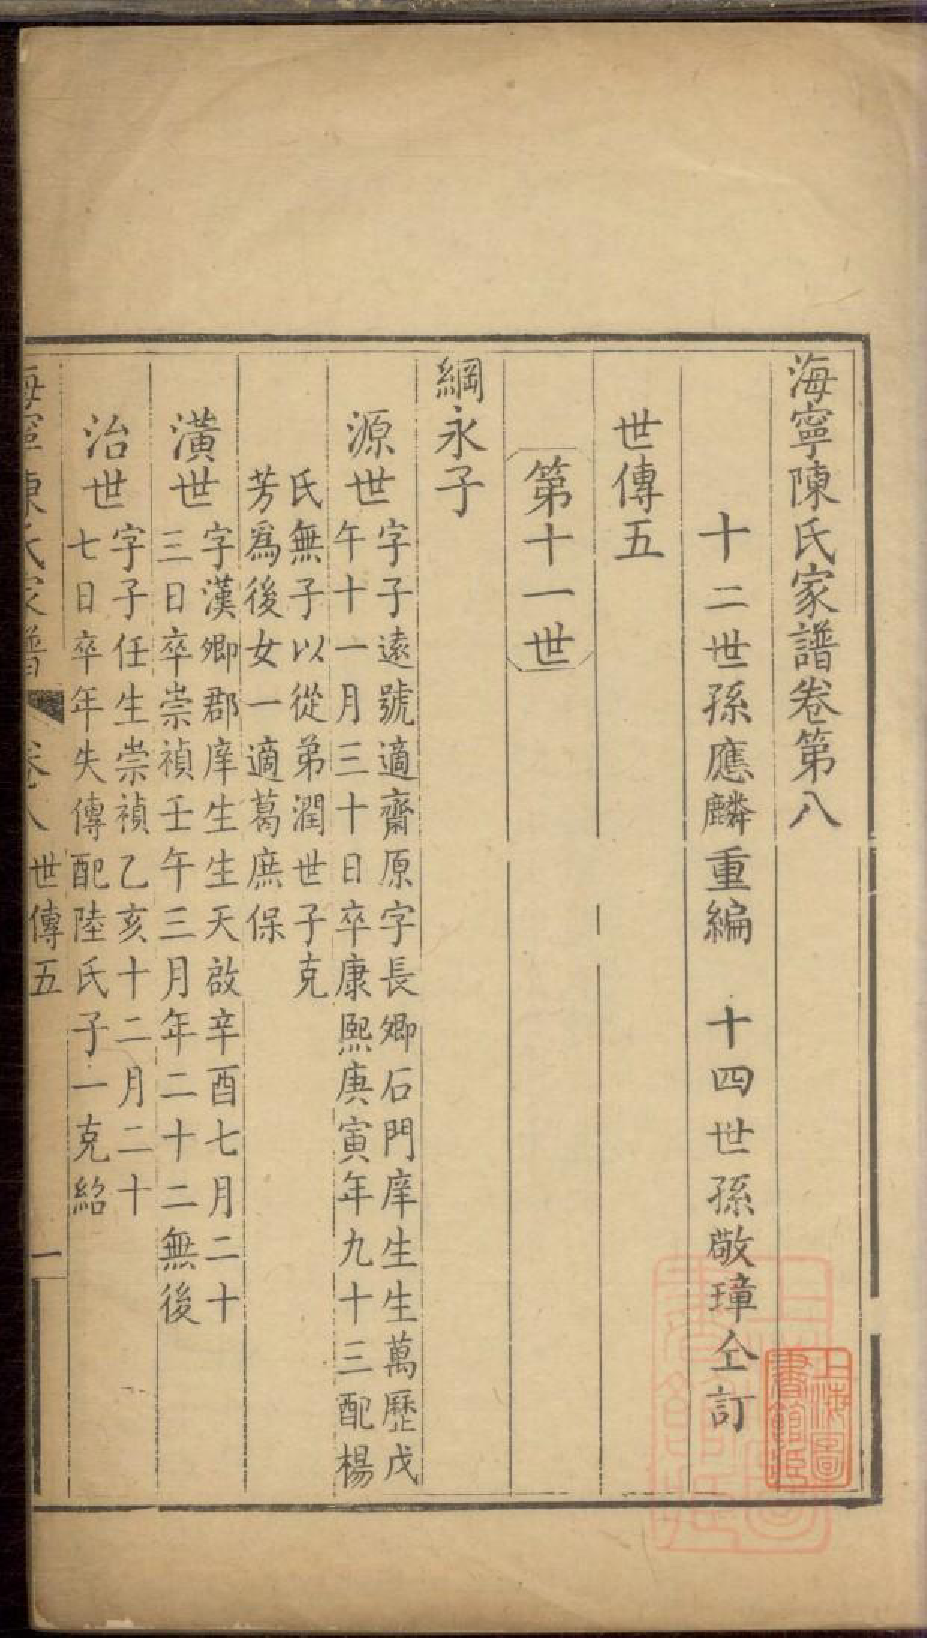 海寧陳氏家譜卷第八
十二世孫應麟重編　十四世孫敬璋仝訂
世傳五
第十一世
綱永子
源世
字子遠號適齋原字長卿石門庠生生萬歷戊
午十一月三十日卒康熙庚寅年九十三配楊
氏無子以從弟潤世子克
芳爲後女一適葛庶保
潢世
字漢卿郡庠生生天啟辛酉七月二十
三日卒崇禎壬午三月年二十二無後
治世
字子任生崇禎乙亥十二月二十
七日卒年失傳配陸氏子一克紹
海寧陳氏家譜
卷八
世傳五
一
上海圖書館藏